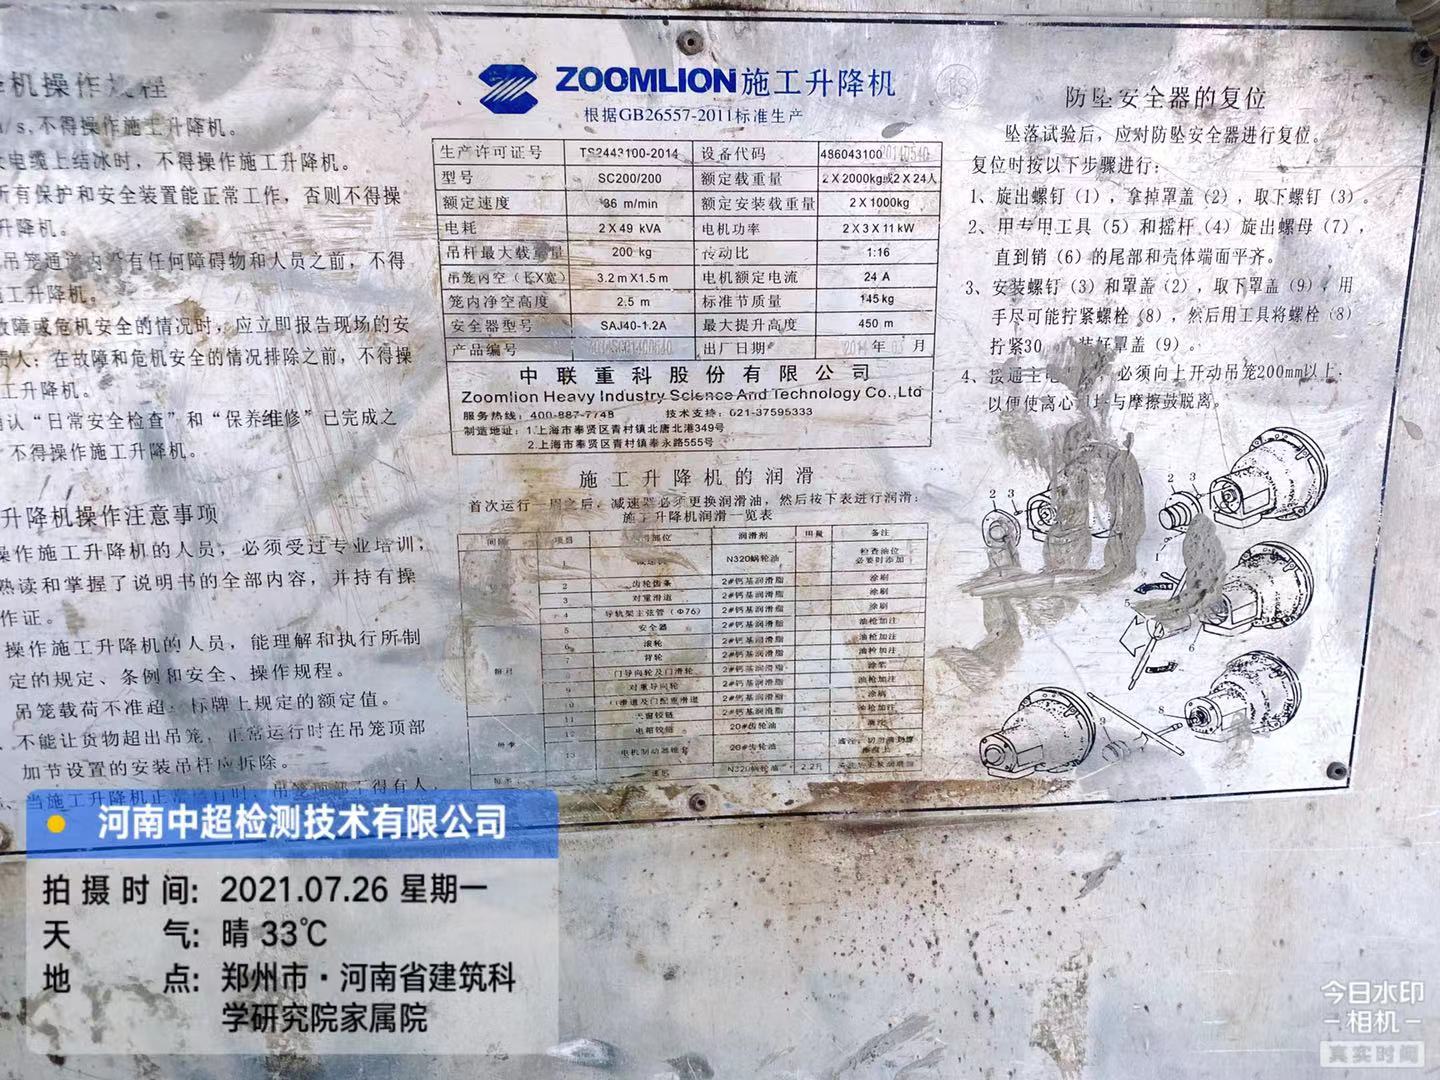 机操作规程
不得操作施工升降机。
电缆上结冰时，不得操作施工升降机。
所有保护和安全装置能正常工作，否则不得操
升降机。
吊笼通道内没有任何障碍物和人员之前，不得
工升降机。
故障或危机安全的情况时，应立即报告现场的安
责人：在故障和危机安全的情况排除之前，不得操
工升降机。
确认“日常安全检查”和“保养维修”已完成之
不得操作施工升降机。
升降机操作注意事项
操作施工升降机的人员，必须受过专业培训，
熟读和掌握了说明书的全部内容，并持有操
作证。
操作施工升降机的人员，能理解和执行所制
定的规定、条例和安全、操作规程。
吊笼载荷不准超 标牌上规定的额定值。
不能让货物超出吊笼，正常运行时在吊笼顶部
加节设置的安装吊杆应拆除。
当施工升降机正常运行时，吊笼顶部不得有人
ZOOMLION 施工升降机
根据GB26557-2011标准生产
生产许可证号 TS2443100-2014 设备代码 486043100
型号 SC200/200 额定载重量 2X2000kg或2X24人
额定速度 36 m/min 额定安装载重量 2X1000kg
电耗 2X49 kVA 电机功率 2X3X11kW
吊杆最大载重量 200 kg 传动比 1:16
吊笼内空（长X宽） 3.2mX1.5m 电机额定电流 24 A
笼内净空高度 2.5 m 标准节质量 145kg
安全器型号 SAJ40-1.2A 最大提升高度 450 m
产品编号 出厂日期 2014 年 月
中联重科股份有限公司
Zoomlion Heavy Industry Science And Technology Co.,Ltd
服务热线：400-887-7748 技术支持：021-37595333
制造地址：1.上海市奉贤区青村镇北唐北港349号
2.上海市奉贤区青村镇奉永路555号
施工升降机的润滑
首次运行一周之后，减速器必须更换润滑油，然后按下表进行润滑：
施工升降机润滑一览表
项目 部位 润滑剂 用量 备注
1 N320蜗轮油 检查油位 必要时添加
2 齿轮齿条 2#钙基润滑脂 涂刷
3 对重滑道 2#钙基润滑脂 涂刷
4 导轨架主弦管（Φ76） 2#钙基润滑脂 涂刷
5 安全器 2#钙基润滑脂 油枪加注
6 滚轮 2#钙基润滑脂 油枪加注
7 背轮 2#钙基润滑脂 油枪加注
门导向轮及门滑轮 2#钙基润滑脂
9 对重导向轮 2#钙基润滑脂 油枪加注
10 2#钙基润滑脂
11 天窗铰链 2#钙基润滑脂 油枪加注
12 电箱铰链 20#齿轮油
13 20#齿轮油
N320蜗轮油
防坠安全器的复位
坠落试验后，应对防坠安全器进行复位。
复位时按以下步骤进行：
1、旋出螺钉（1），拿掉罩盖（2），取下螺钉（3）。
2、用专用工具（5）和摇杆（4）旋出螺母（7），
直到销（6）的尾部和壳体端面平齐。
3、安装螺钉（3）和罩盖（2），取下罩盖（9），用
手尽可能拧紧螺栓（8），然后用工具将螺栓（8）
拧紧30 装好罩盖（9）。
4、接通主电 必须向上开动吊笼200mm以上，
以便使离心 块与摩擦鼓脱离。
2 3
2 3
1
5
6
9
8
河南中超检测技术有限公司
拍摄时间：2021.07.26 星期一
天 气：晴 33℃
地 点：郑州市·河南省建筑科
学研究院家属院
今日水印
相机
真实时间